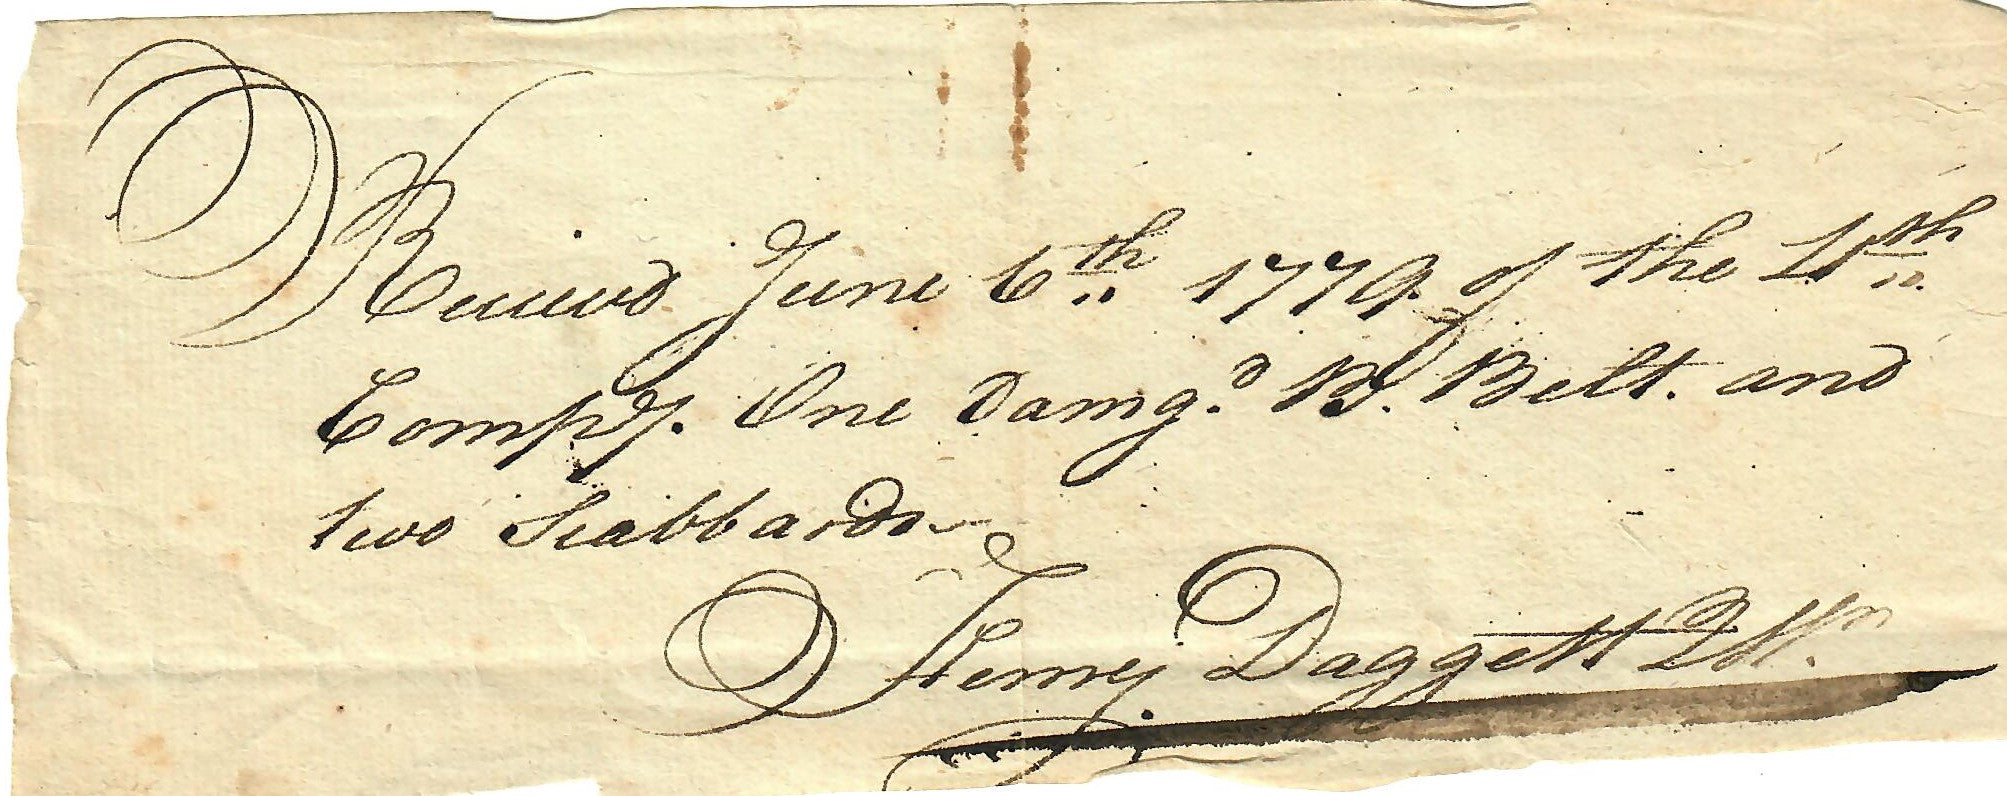 Received June 6th 1779 of the 4th
Compy. One Damgd. Belt. and
two Scabbards
Henry Daggett